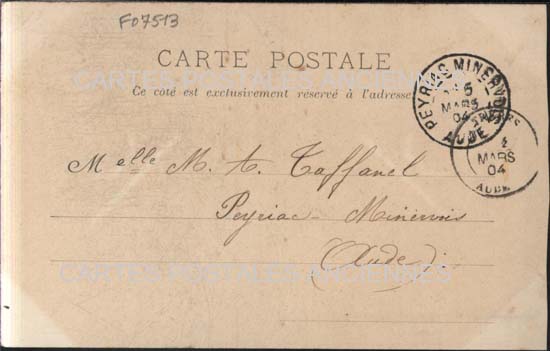 F07513
CARTE POSTALE
Ce côté est exclusivement réservé à l'adresse
CARTES POSTALES ANCIENNES
PEYRIAC MINERVOIS
5
MARS
04
AUDE
MARS
04
AUDE
Melle M. A. Taffanel
Peyriac-Minervois
(Aude)
CARTES POSTALES ANCIENNES